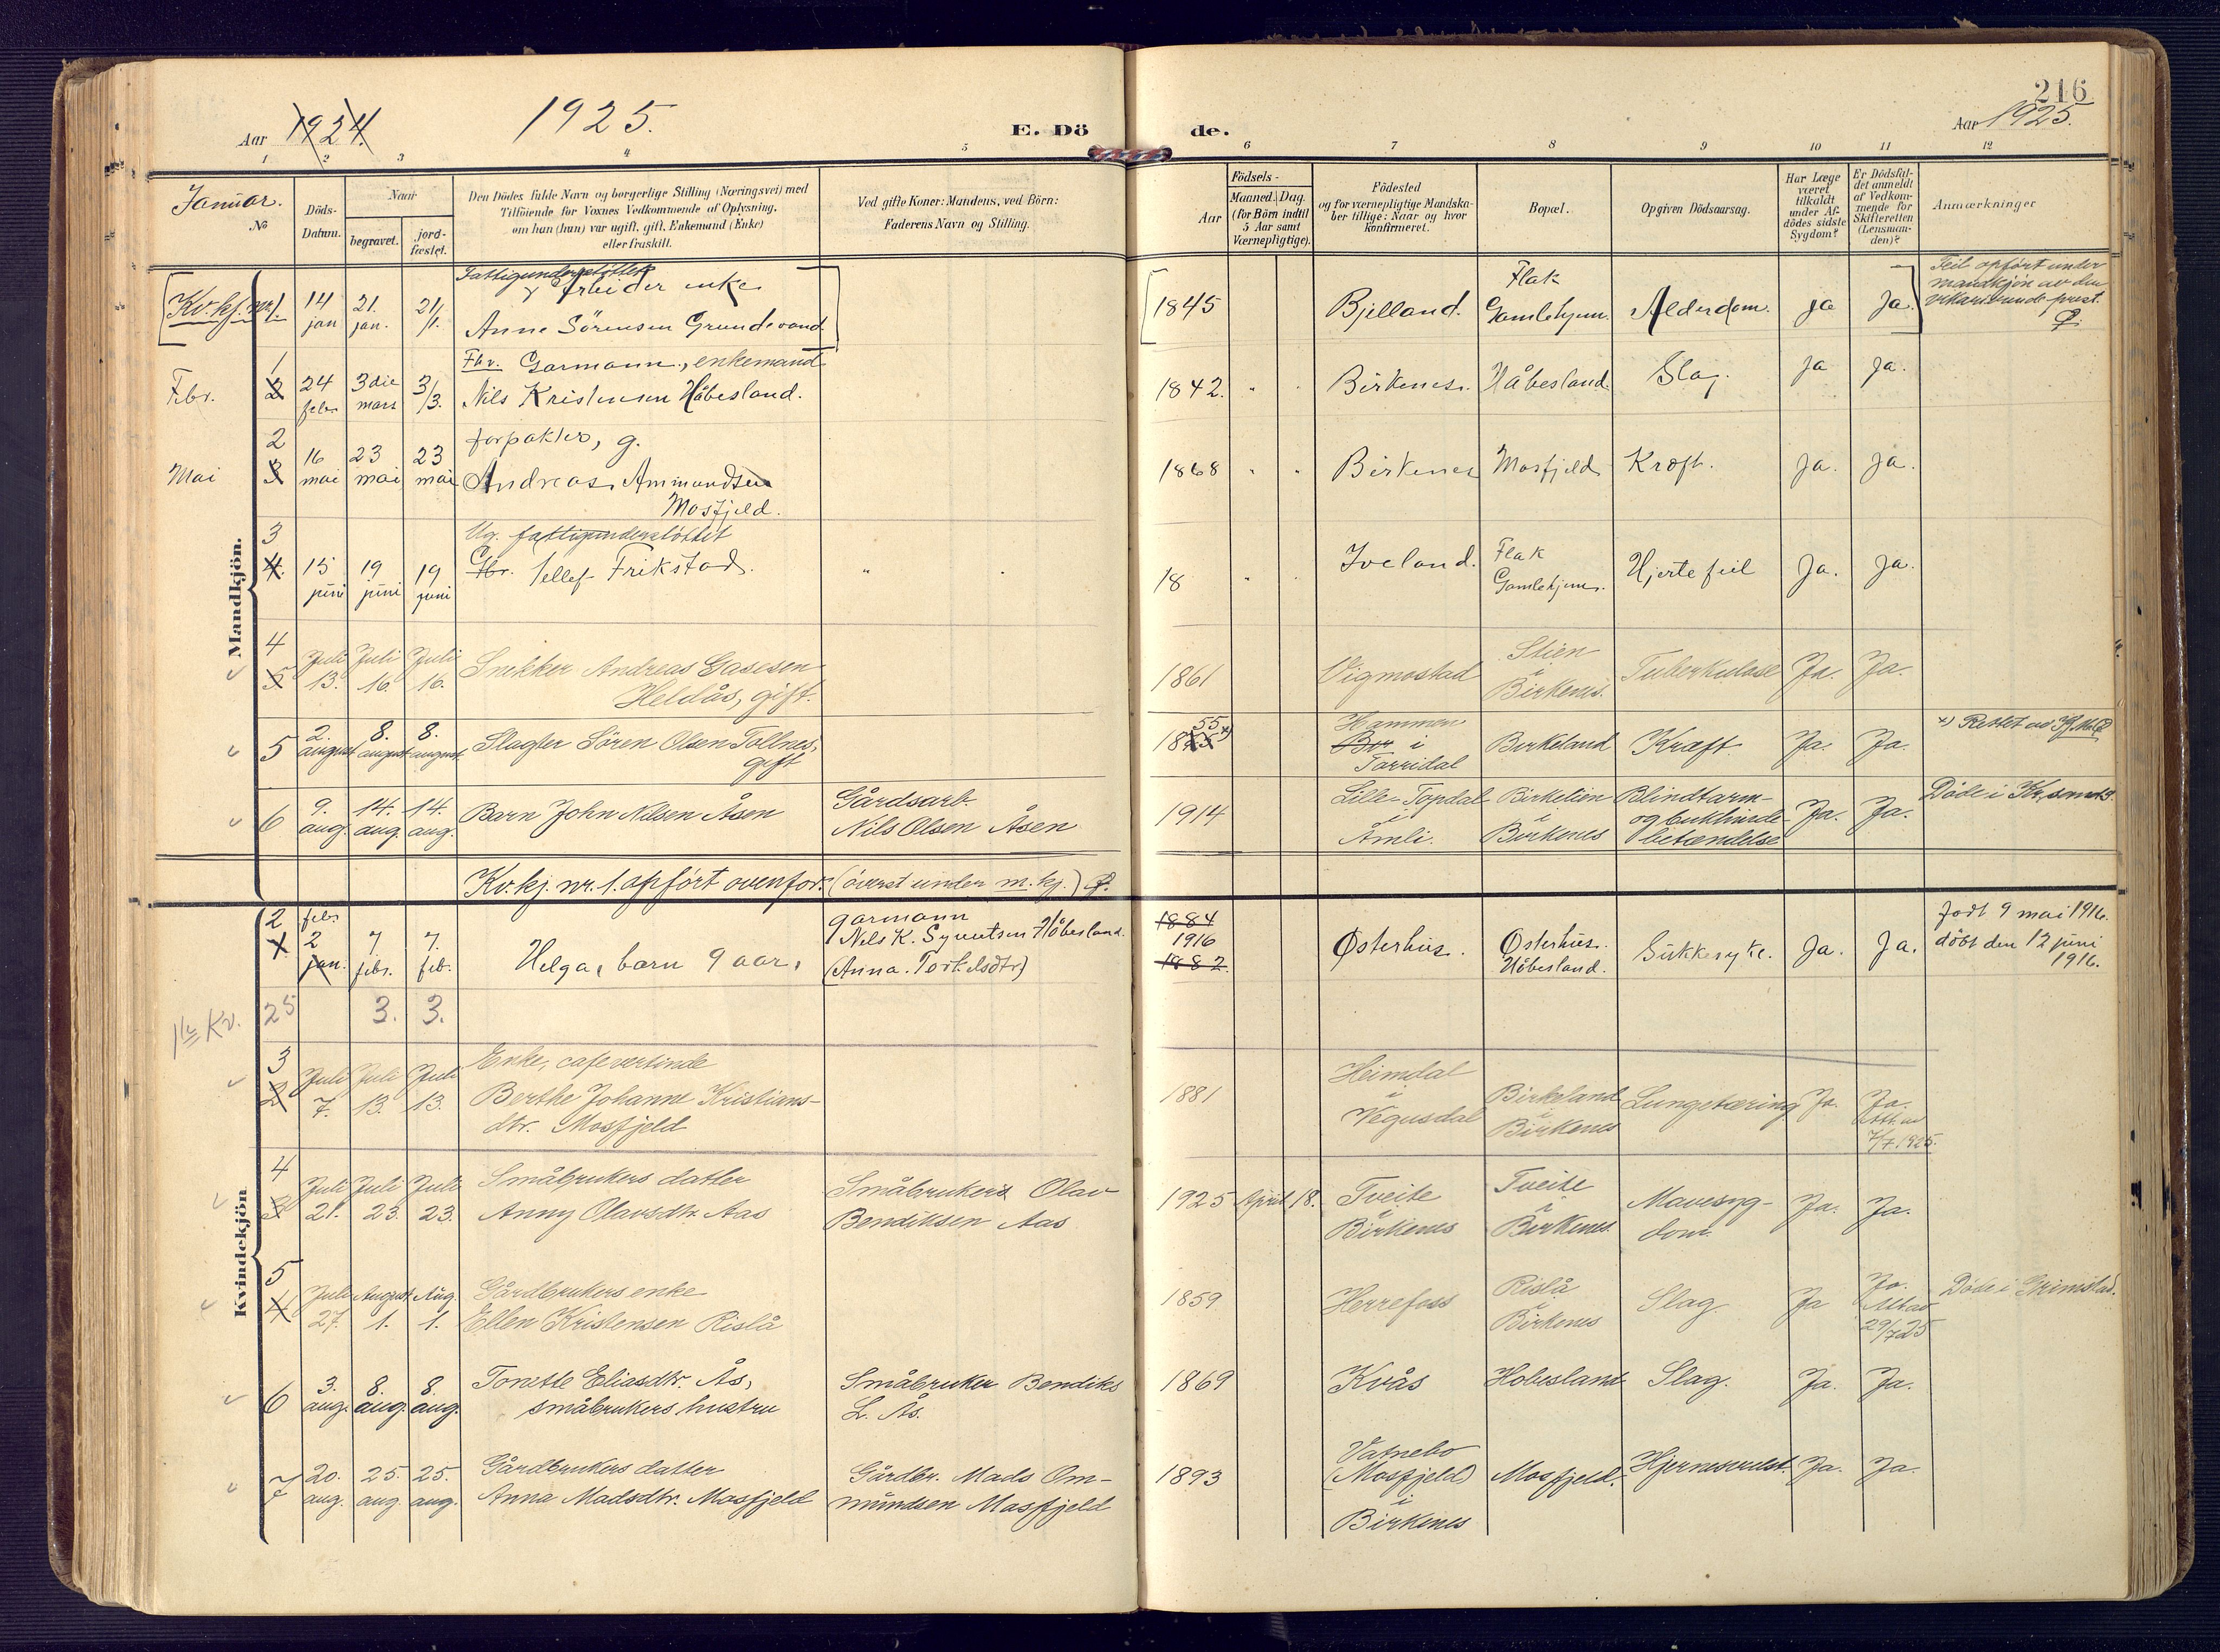 216
Aar 1924. 1925. E. Döde. Aar 1925.
1 2 3 4 5 6 7 8 9 10 11 12
Januar.
No
Döds-
Datum.
Naar
begravet.
jord-
fæstet.
Den Dödes fulde Navn og borgerlige Stilling (Næringsvei) med
Tilföiende for Voxnes Vedkommende af Oplysning,
om han (hun) var ugift, gift, Enkemand (Enke)
eller fraskilt.
Ved gifte Koner: Mandens, ved Börn:
Faderens Navn og Stilling.
Aar
Födsels-
Maaned. Dag.
(for Börn indtil
5 Aar samt
Værnepligtige).
Födested
og for værnepligtige Mandska-
ber tillige: Naar og hvor
konfirmeret.
Bopæl.
Opgiven Dödsaarsag.
Har Læge
været
tilkaldt
under Af-
dödes sidste
Sygdom?
Er Dödsfal-
det anmeldt
af Vedkom-
mende for
Skifteretten
(Lensman-
den)?
Anmærkninger
Mandkjön.
Kv. kj. nr. 1.
14 jan
21. jan.
21/1.
Fattigunderstöttet
Arbeider enke
Anne Sörensen Grundevand
1845
Bjelland.
Flak
Gamlehjem.
Alderdom.
ja
Ja.
Feil opfört under
mandkjön av den
vikarierende prest.
Febr.
1
2
24 febr
3die mars
3/3.
Fhv. Garmann, enkemand
Nils Kristensen Håbesland.
1842.
Birkenes.
Håbesland.
Slag.
Ja
Ja.
Mai
2
3
16 mai
23 mai
23 mai
forpakter, g.
Andreas Ammundsen
Mosfjeld.
1868
Birkenes
Mosfjeld
Kræft.
Ja.
Ja.
3
4.
15 juni
19 juni
19 juni
Ug. fattigunderstöttet
Tellef Frikstad.
18
Iveland.
Flak
Gamlehjem.
Hjertefeil
Ja.
Ja.
4
5
Juli 13.
Juli 16.
Juli 16.
Snekker Andreas Gasesen
Heldås, gift.
1861
Vigmostad
Stien
i
Birkenes.
Tuberkulose
Ja.
Ja.
5
2. august
8. august
8. august.
Slagter Sören Olsen Tollnes,
gift
55
18
Hammen
i
Torridal
Birkeland
Kræft
Ja.
Ja.
x) Rettet av
6
9. aug.
14. aug.
14. aug.
Barn John Nilsen Åsen
Gårdsarb.
Nils Olsen Åsen
1914
Lille-Topdal
i
Åmli.
Birkelien
i
Birkenes
Blindtarm-
og bukhinde-
betændelse
Ja.
Ja.
Döde i Kr.sand S.
Kv. kj. nr. 1. opfört ovenfor. (överst under m. kj.)
Kvindekjön
2
1
febr
2
jan.
7 febr.
7. feb.
Helga, barn 9 aar,
garmann
Nils K. Syvertsen Håbesland.
(Anna Torkelsdtr)
1884
1916
1882.
Østerhus.
Østerhus.
Håbesland.
Sukkersyke.
Ja.
Ja.
født 9 mai 1916.
döbt den 12 juni
1916.
Kv. 25 3. 3.
3
2
Juli 7.
Juli 13.
Juli 13.
Enke, cafeværtinde
Berthe Johanne Kristians-
dtr. Mosfjeld
1881
Heimdal
i
Vegusdal
Birkeland
i
Birkenes
Lungetæring
Ja.
Ja.
7/7.1925.
4
3
Juli 21.
Juli 23.
Juli 23.
Småbrukers datter
Anny Olavsdtr. Aas
Småbrukers Olav
Bendiksen Aas
1925
April
18.
Tveite
i
Birkenes
Tveite
i
Birkenes.
Mavesyg-
dom.
Ja.
Ja.
5
4
Juli 27.
August 1.
Aug. 1.
Gårdbrukers enke
Ellen Kristensen Rislå
1859
Herrefoss
Rislå
i
Birkenes
Slag.
Ja
Ja.
29/7 25
Döde i Grimstad.
6
3. aug.
8. aug.
8. aug.
Tonette Eliasdtr. Ås,
småbrukers hustru
Småbruker Bendiks
L. Ås.
1869
Kvås
Hobesland
Slag.
Ja.
Ja.
7
20. aug.
25. aug.
25. aug.
Gårdbrukers datter
Anna Madsdtr. Mosfjeld
Gårdbr. Mads Om-
mundsen Mosfjeld
1893
Vatnebo
(Mosfjeld)
i
Birkenes
Mosfjeld.
Ja.
Ja.